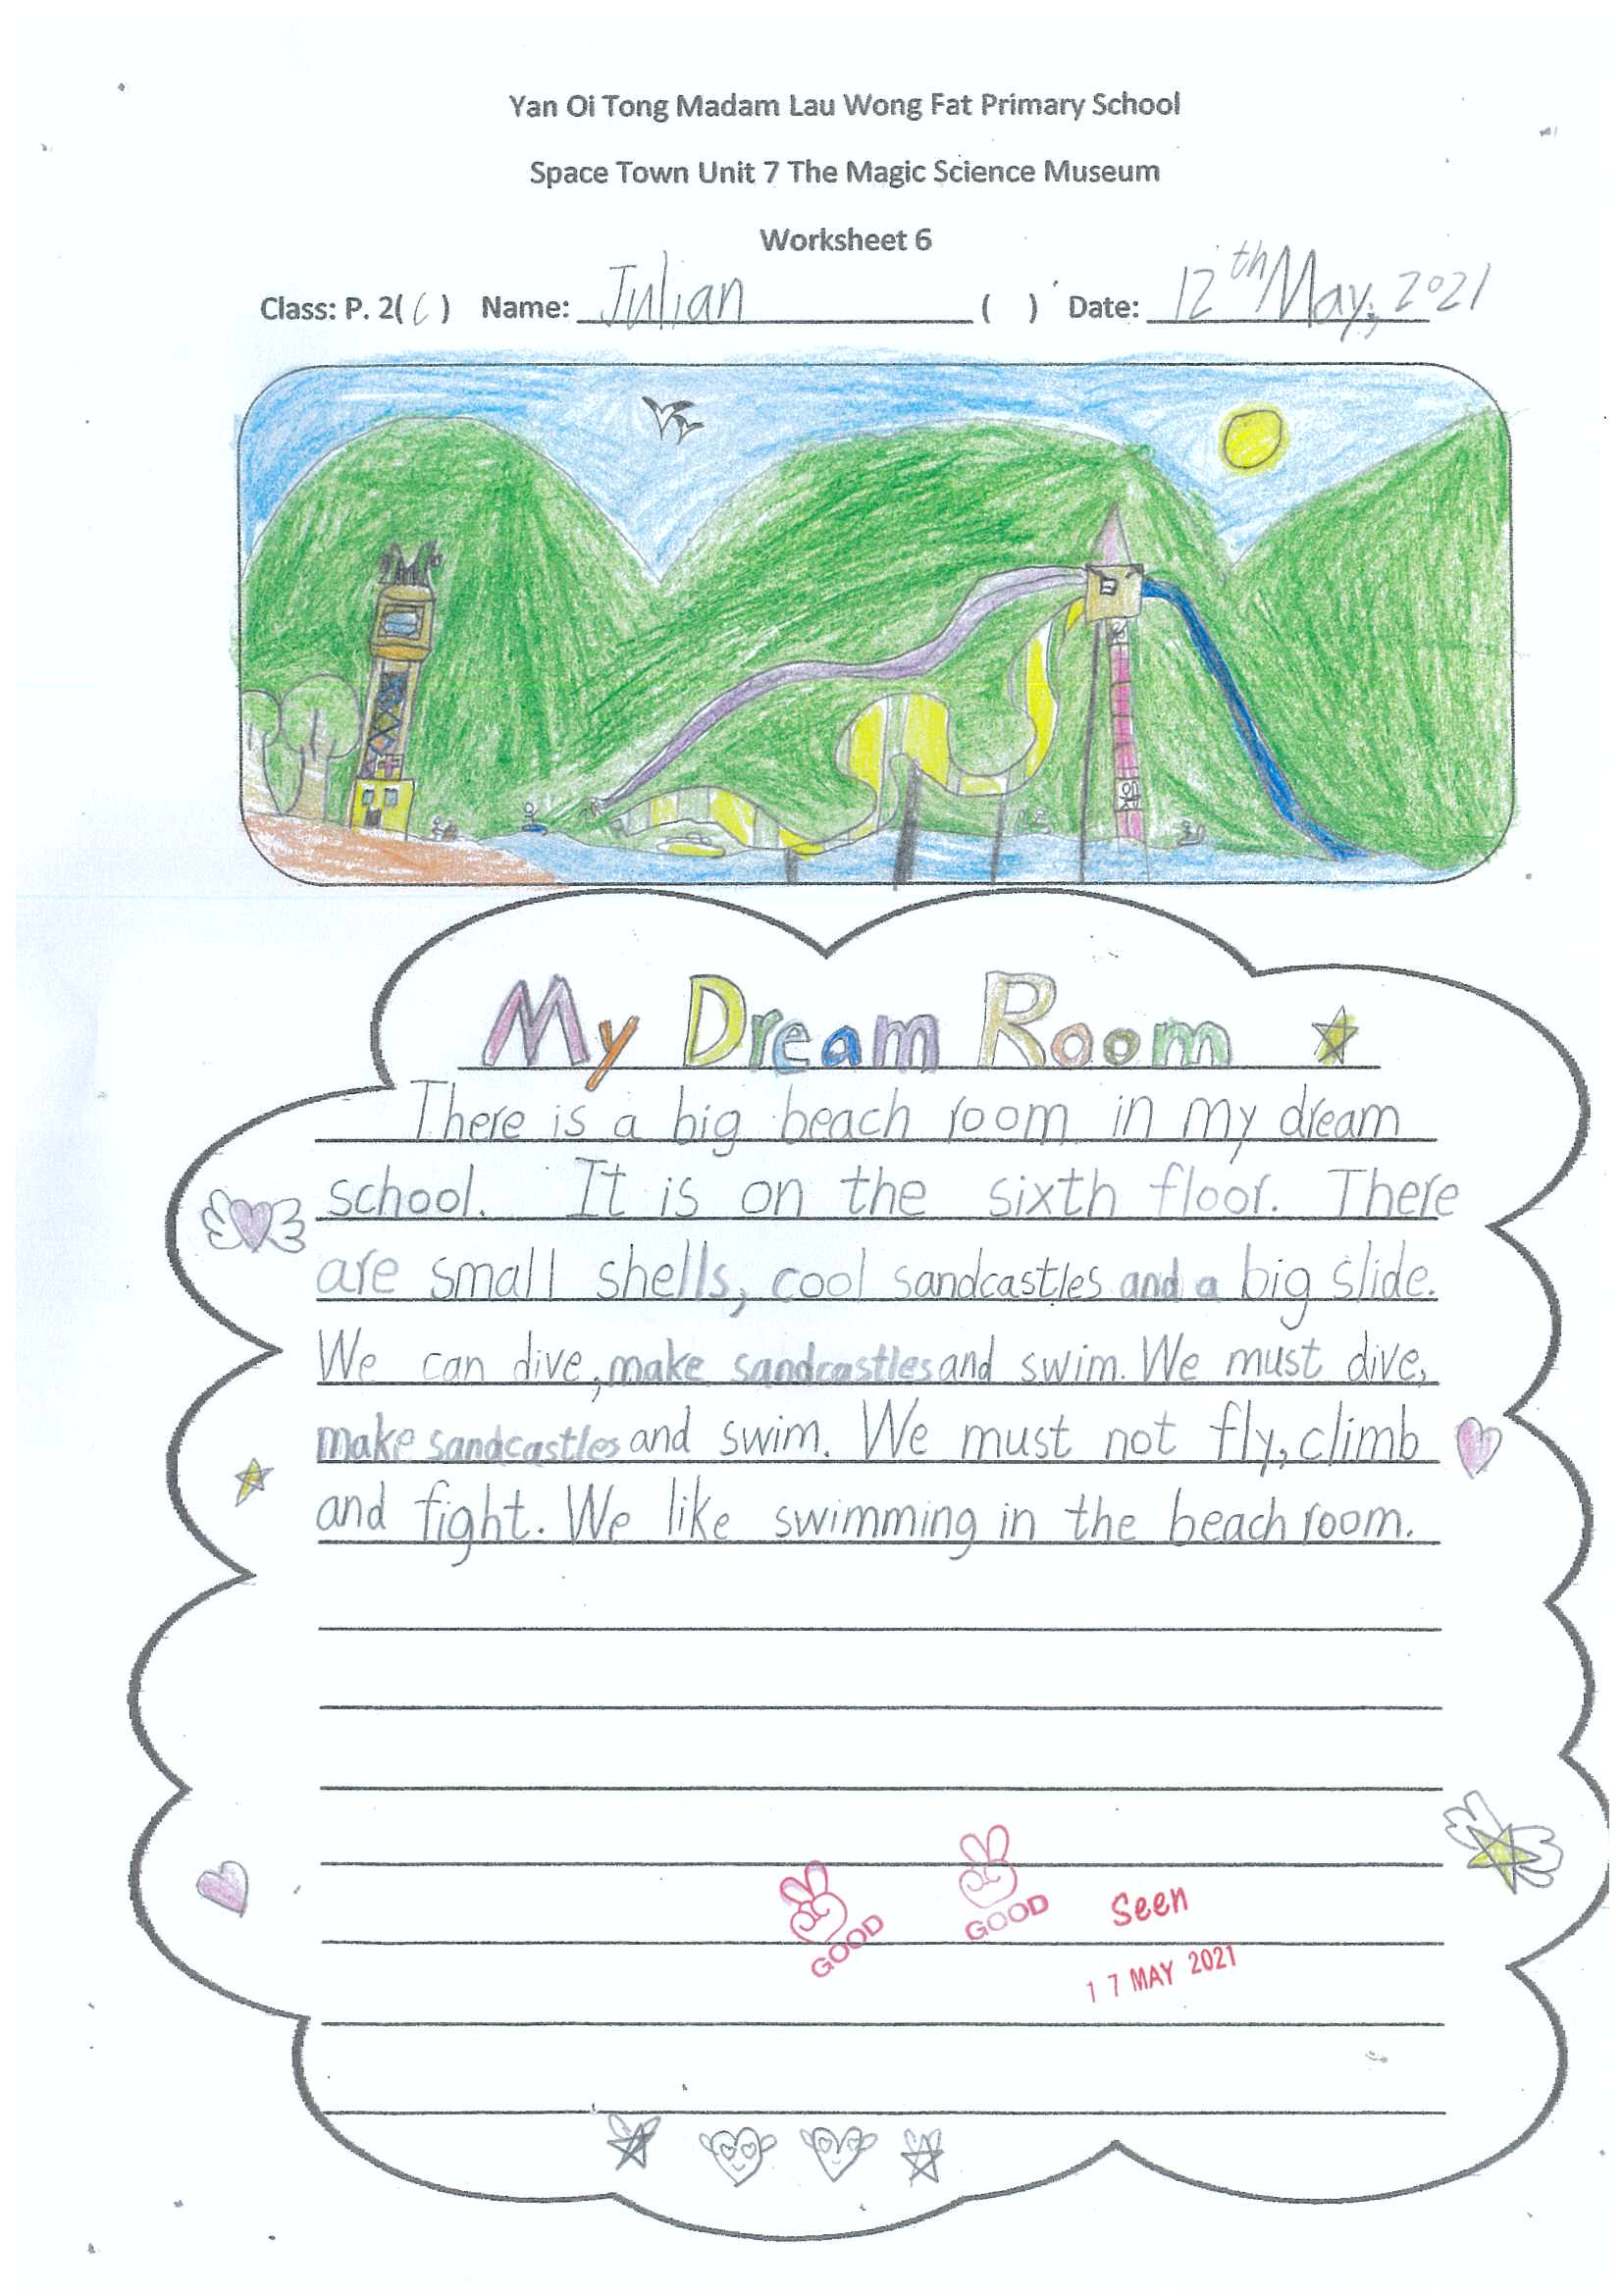 Yan Oi Tong Madam Lau Wong Fat Primary School
Space Town Unit 7 The Magic Science Museum
Worksheet 6
Class: P. 2(C) Name: Julian ( ) Date: 12th May, 2021
My Dream Room
There is a big beach room in my dream
school. It is on the sixth floor. There
are small shells, cool sandcastles and a big slide.
We can dive, make sandcastles and swim. We must dive,
make sandcastles and swim. We must not fly, climb
and fight. We like swimming in the beach room.
GOOD GOOD Seen
17 MAY 2021